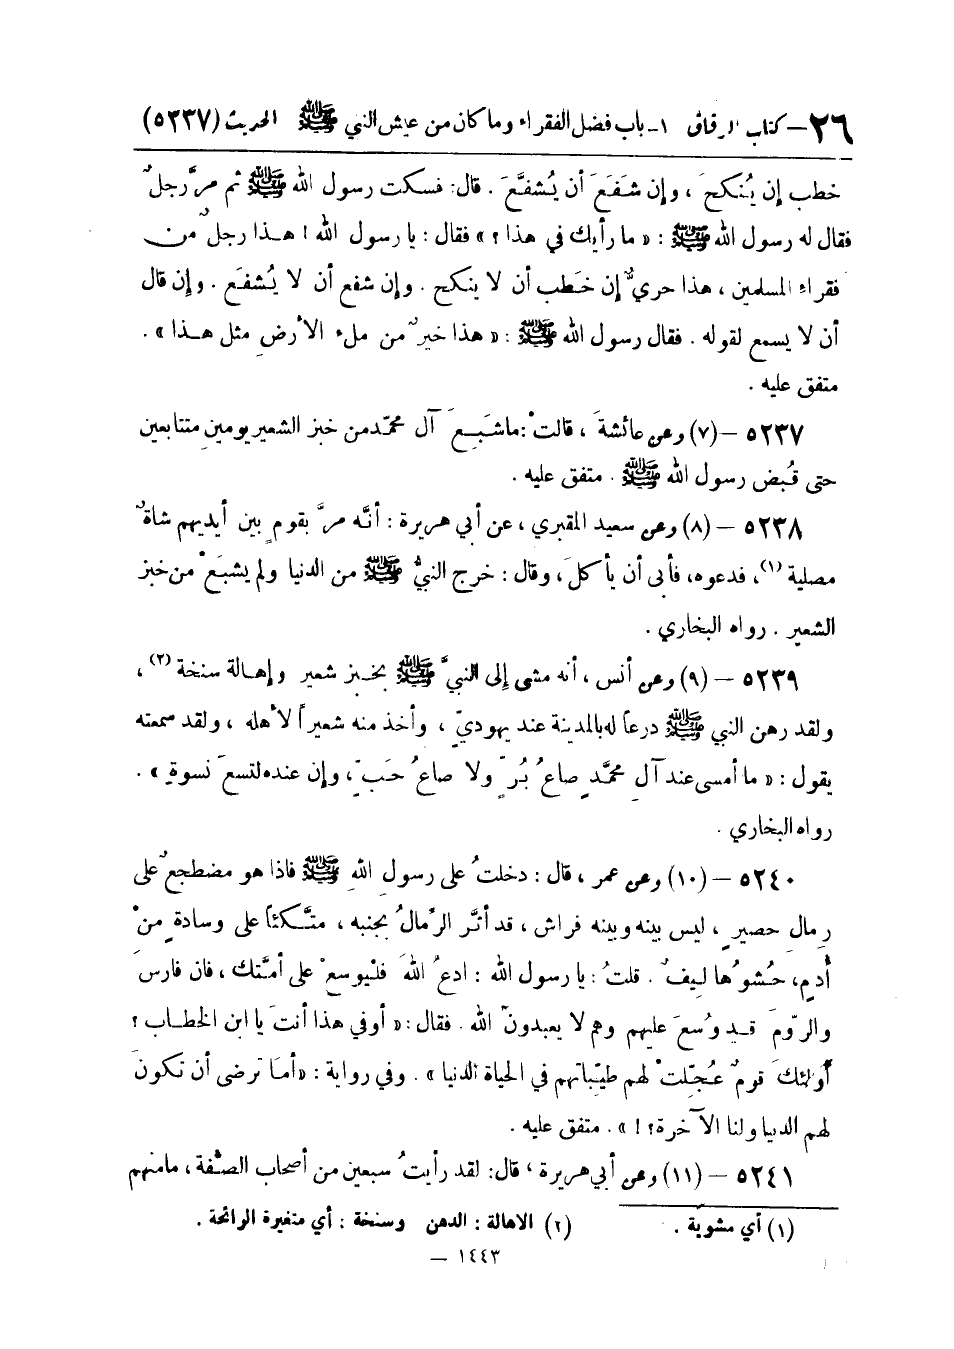 ٢٦ – كتاب الرقاق ١- باب فضل الفقراء وما كان من عيش النبي ﷺ الحديث (٥٢٣٧)
خطب إن يُنكحَ ، وإن شفَعَ أن يُشفَّعَ . قال: فسكت رسول الله ﷺ ثم مرَّ رجلٌ
فقال له رسول الله ﷺ : « ما رأيك في هذا ؟ » فقال : يا رسول الله ! هذا رجلٌ من
فقراء المسلمين ، هذا حريٌّ إن خطب أن لا ينكح . وإن شفع أن لا يُشفَع . وإن قال
أن لا يسمع لقوله . فقال رسول الله ﷺ : « هذا خيرٌ من ملء الأرضِ مثل هذا » .
متفق عليه .
٥٢٣٧ – (٧) وعن عائشةَ ، قالتْ : ما شبعَ آل محمّد من خبز الشعير يومين متتابعين
حتى قُبض رسول الله ﷺ . متفق عليه .
٥٢٣٨ – (٨) وعن سعيد المقبري ، عن أبي هريرة : أنَّه مرَّ بقومٍ بين أيديهم شاةٌ
مصلية (١)، فدعوه، فأبى أن يأكلَ، وقال : خرج النبيُّ ﷺ من الدنيا ولم يشبعْ من خبز
الشعير . رواه البخاري .
٥٢٣٩ – (٩) وعن أنس ، أنه مشى إلى النبيَّ ﷺ بخبز شعير وإهالة سنخة (٢) ،
ولقد رهن النبي ﷺ درعاً له بالمدينة عند يهوديٍّ ، وأخذ منه شعيراً لأهله ، ولقد سمعته
يقول : « ما أمسى عند آلِ محمَّدٍ صاعُ بُرٍّ ولا صاعُ حَبٍّ ، وإن عنده لتسعَ نسوةٍ » .
رواه البخاري .
٥٢٤٠ – (١٠) وعن عمر ، قال : دخلتُ على رسولِ اللهِ ﷺ فاذا هو مضطجعٌ على
رِمالِ حصيرٍ ، ليس بينه وبينه فراش ، قد أثَّر الرِّمالُ بجنبه ، متَّكئاً على وسادةٍ منْ
أَدمٍ ، حَشوُها ليفٌ . قلتُ : يا رسول الله : ادعُ اللهَ فليوسعْ على أمَّتك ، فان فارسَ
والرّومَ قد وُسعَ عليهم وهم لا يعبدونَ الله . فقال : « أوفي هذا أنتَ يا ابن الخطاب ؟
أولئكَ قومٌ عُجِّلتْ لهم طيّباتهم في الحياة الدنيا » . وفي رواية : « أما ترضى أن تكونَ
لهم الدنيا ولنا الآخرة ؟ ! » . متفق عليه .
٥٢٤١ – (١١) وعن أبي هريرة ، قال: لقد رأيتُ سبعين من أصحاب الصُّفة ، ما منهم
(١) أي مشوية . (٢) الاهالة : الدهن وسنخة : أي متغيرة الرائحة .
– ١٤٤٣